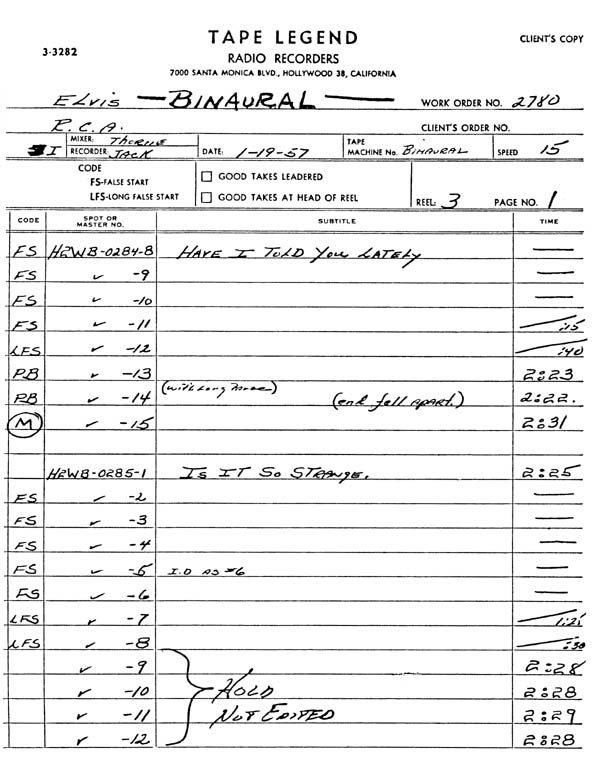 TAPE LEGEND
CLIENT'S COPY
3-3282
RADIO RECORDERS
7000 SANTA MONICA BLVD., HOLLYWOOD 38, CALIFORNIA
ELVIS — BINAURAL — WORK ORDER NO. 2780
R.C.A. CLIENT'S ORDER NO.
I MIXER: THORNE
RECORDER: JACK DATE: 1-19-57 TAPE MACHINE No. BINAURAL SPEED 15
CODE
FS-FALSE START
LFS-LONG FALSE START
GOOD TAKES LEADERED
GOOD TAKES AT HEAD OF REEL
REEL: 3 PAGE NO. 1
CODE SPOT OR MASTER NO. SUBTITLE TIME
FS H2WB-0284-8 HAVE I TOLD YOU LATELY —
FS ✓ -9 —
FS ✓ -10 —
FS ✓ -11 :15
LFS ✓ -12 :40
PB ✓ -13 2:23
PB ✓ -14 (end fell apart.) 2:22.
M ✓ -15 2:31
H2WB-0285-1 IS IT SO STRANGE. 2:25
FS ✓ -2 —
FS ✓ -3 —
FS ✓ -4 —
FS ✓ -5 I.D AS #6 —
FS ✓ -6 —
LFS ✓ -7
LFS ✓ -8 :30
✓ -9 2:28
✓ -10 HOLD 2:28
✓ -11 NOT EDITED 2:29
✓ -12 2:28